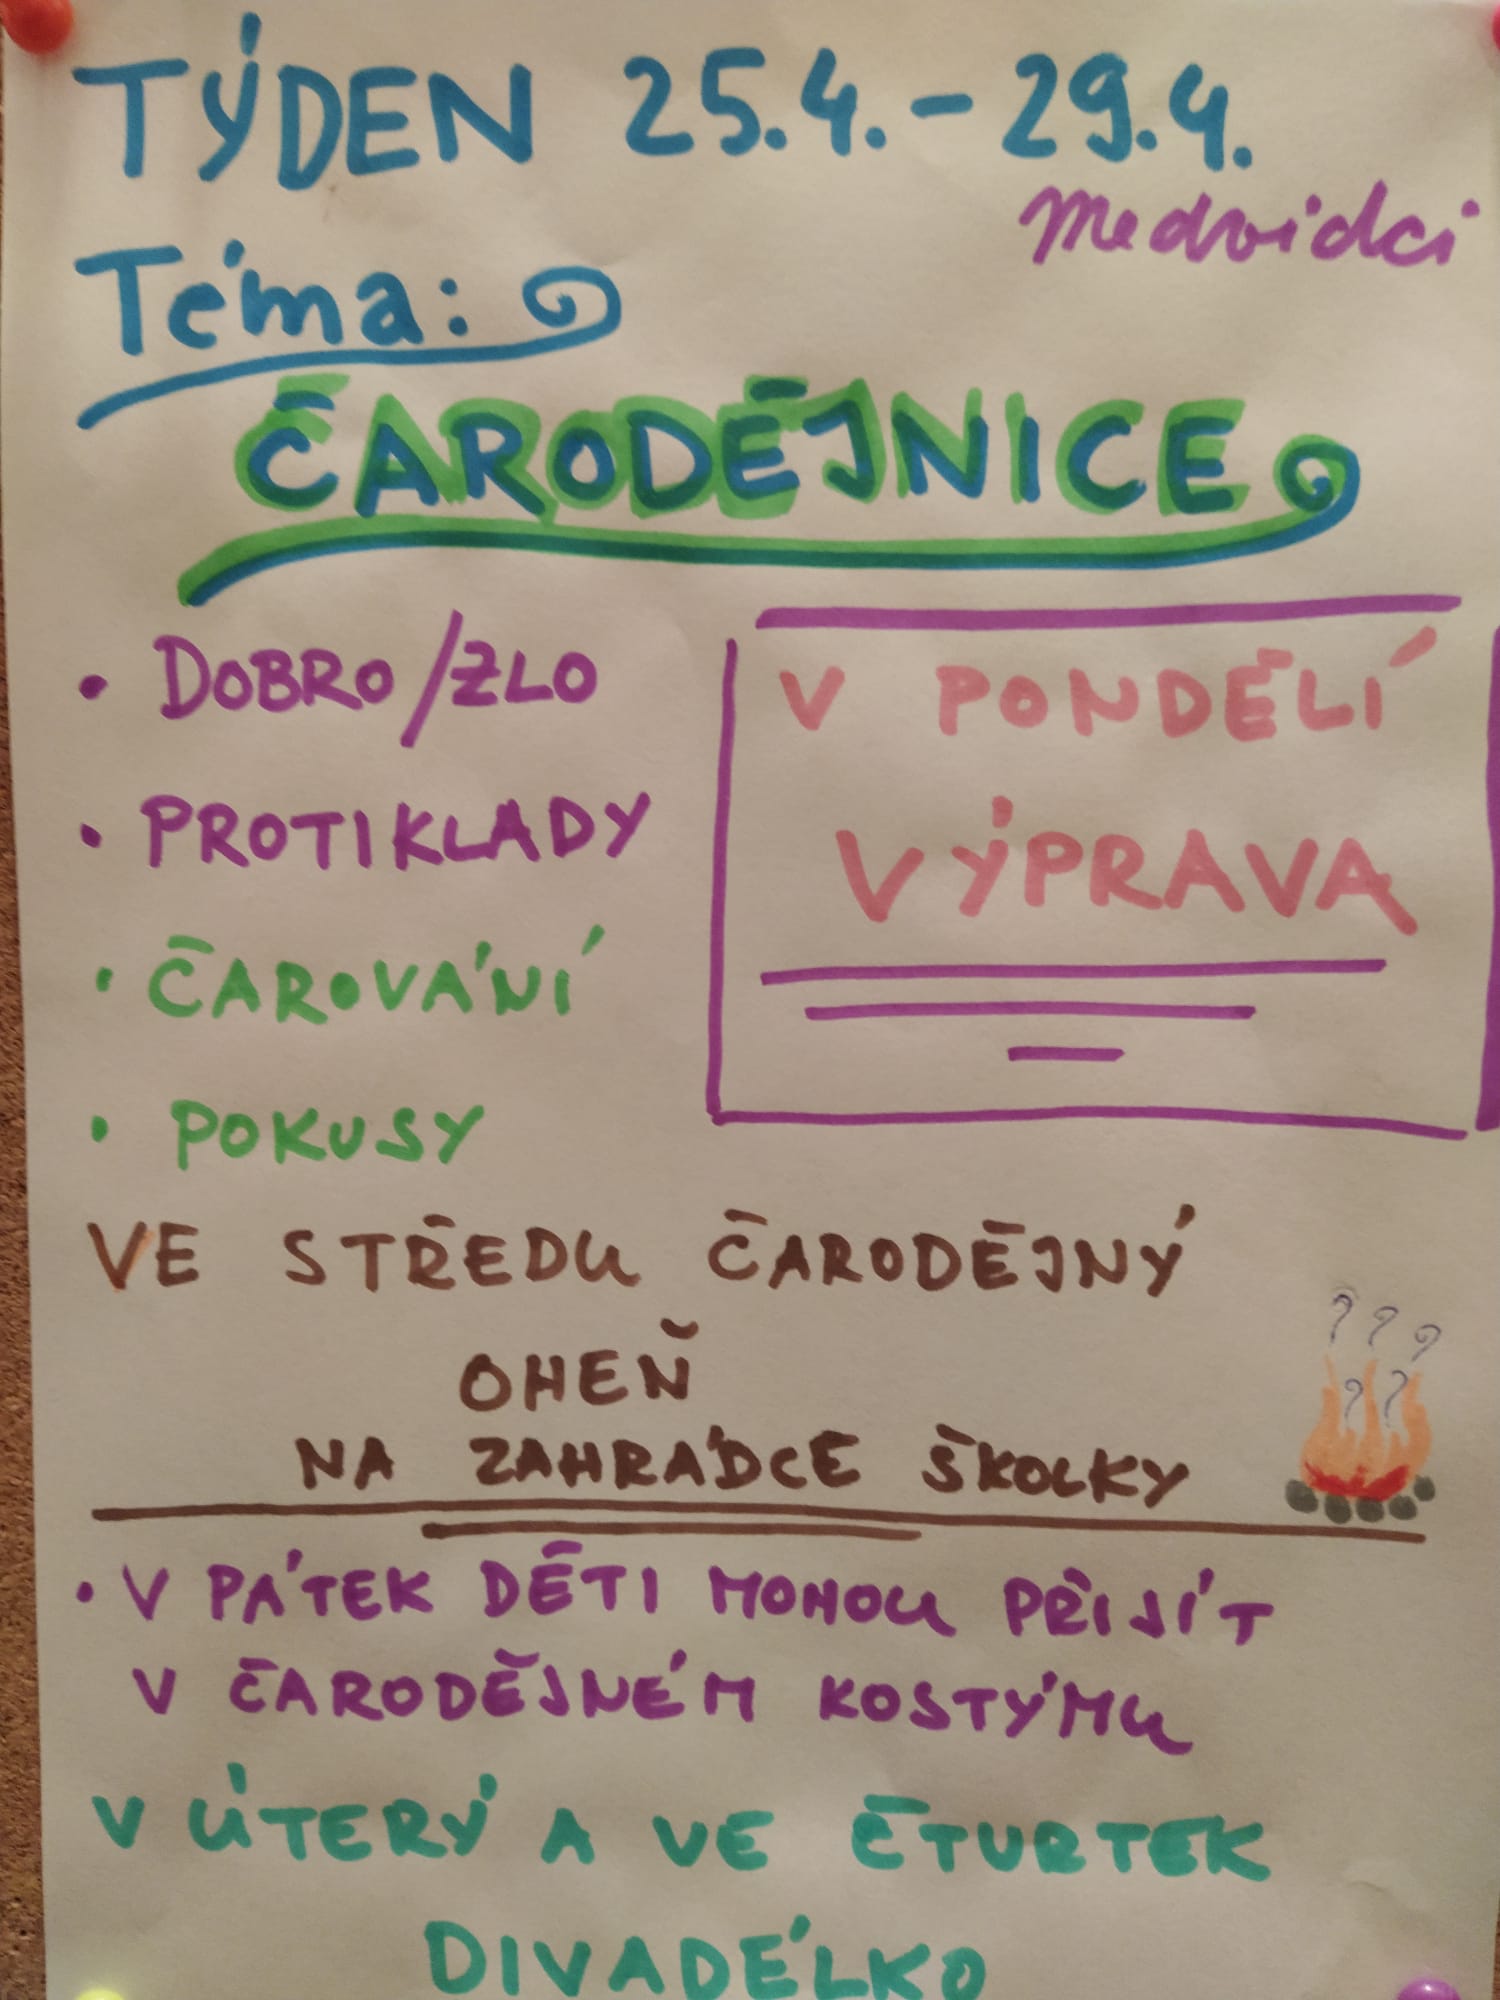 TÝDEN 25.4.-29.4.
Medvídci
Téma:
ČARODĚJNICE
• DOBRO/ZLO
• PROTIKLADY
• ČAROVÁNÍ
• POKUSY
V PONDĚLÍ
VÝPRAVA
VE STŘEDU ČARODĚJNÝ
OHEŇ
NA ZAHRÁDCE ŠKOLKY
• V PÁTEK DĚTI MOHOU PŘIJÍT
V ČARODĚJNÉM KOSTÝMU
V ÚTERÝ A VE ČTVRTEK
DIVADÉLKO